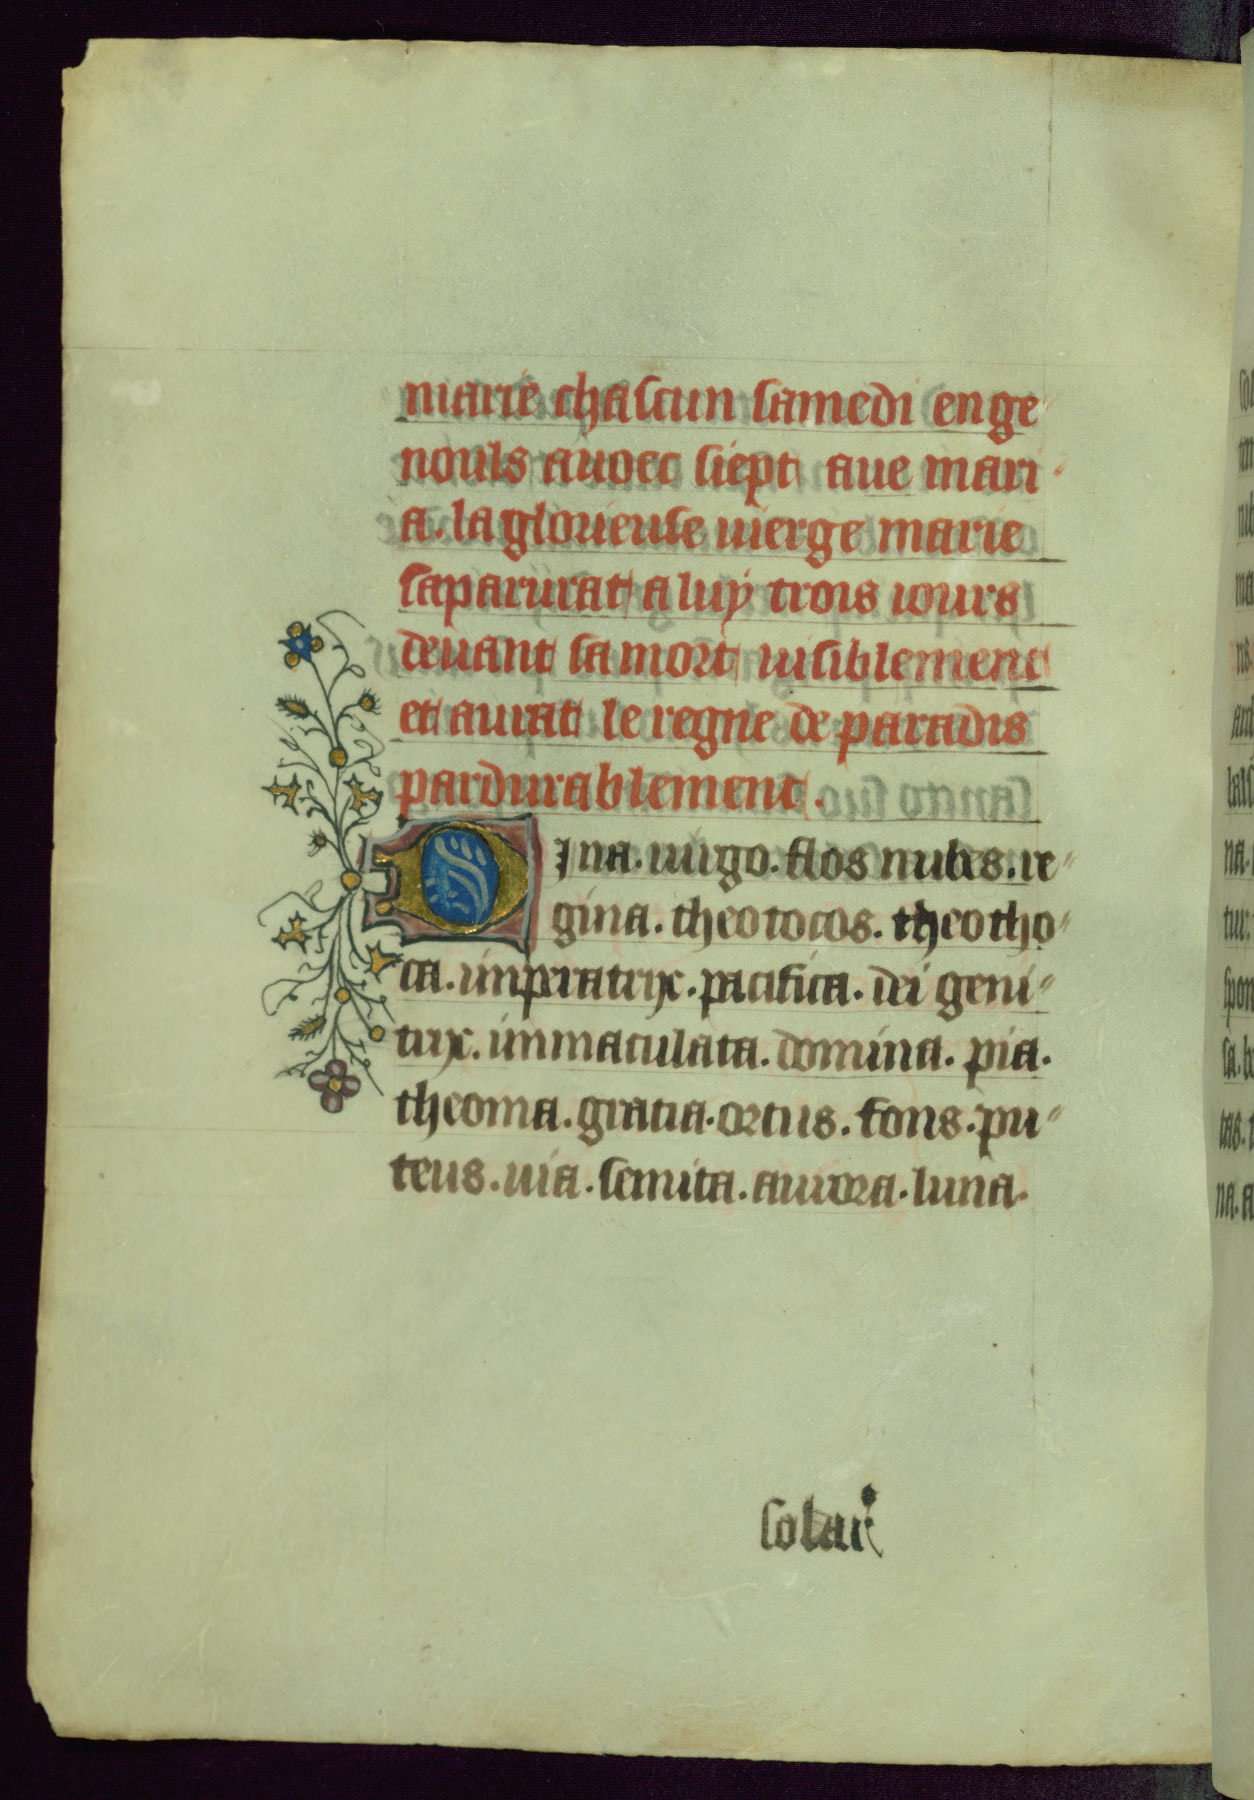 marie chascun samedi en ge
nouls auoec siept aue mari
a. la glorieuse uierge marie
saparurat a luy trois iours
deuant sa mort uisiblement
et aurat le regne de paradis
pardurablement.
Diua. uirgo. flos nubes. re
gina. theotocos. theotho
ca. imperatrix. pacifica. dei geni
trix. immaculata. domina. pia.
theoma. gratia. ortus. fons. pu
teus. uia. semita. aurora. luna.
solar